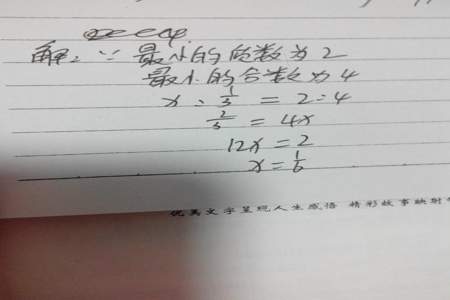 解:∵最小的质数为2
最小的合数为4
x:1/3=2:4
2/3=4x
12x=2
x=1/6
优美文字呈现人生感悟 精彩故事映射